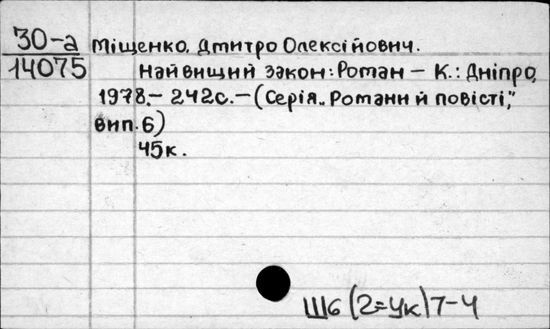 30-а
14075
Міщенко, Дмитро Олексійович.
Найвищий закон: Роман — К.: Дніпро,
1978.— 242с.— (Серія „Романи й повісті,"
вип. 6)
45к.
Ш6(2=Ук)7-4